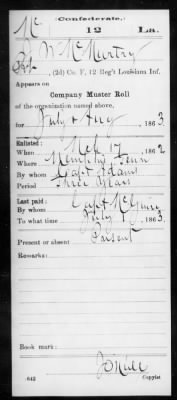 Mc Confederate.
12 La.
W McMurtry
Pvt, (2d) Co. F, 12 Reg't Louisiana Inf.
Appears on
Company Muster Roll
of the organization named above,
for July & Aug, 1863
Enlisted:
When Mch 17, 1862
Where Memphis Tenn
By whom Capt Adams
Period Three Years
Last paid:
By whom Capt McGuire
To what time July 1, 1863.
Present or absent Present
Remarks:
Book mark:
(642) Copyist